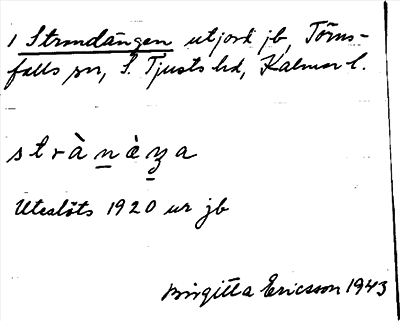 1 Strandängen utjord jb, Törns-
falls sn, S. Tjusts hd, Kalmar l.
strànèza
Uteslöts 1920 ur jb
Birgitta Ericsson 1943